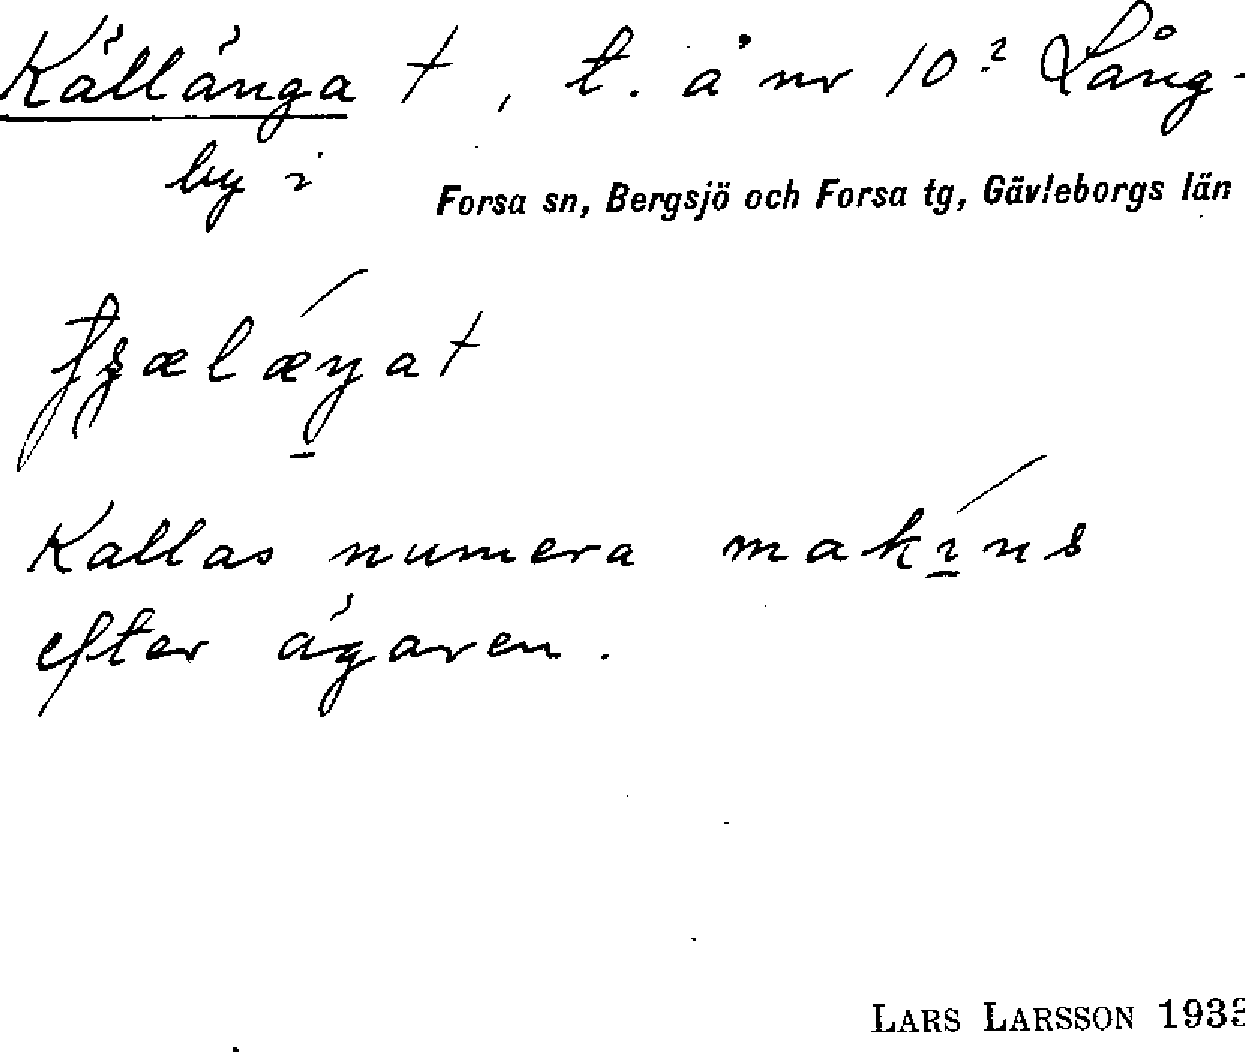 Källänga t, t. å nr 10² Lång-
by i Forsa sn, Bergsjö och Forsa tg, Gävleborgs län
Kallas numera makins
efter ägaren.
LARS LARSSON 193